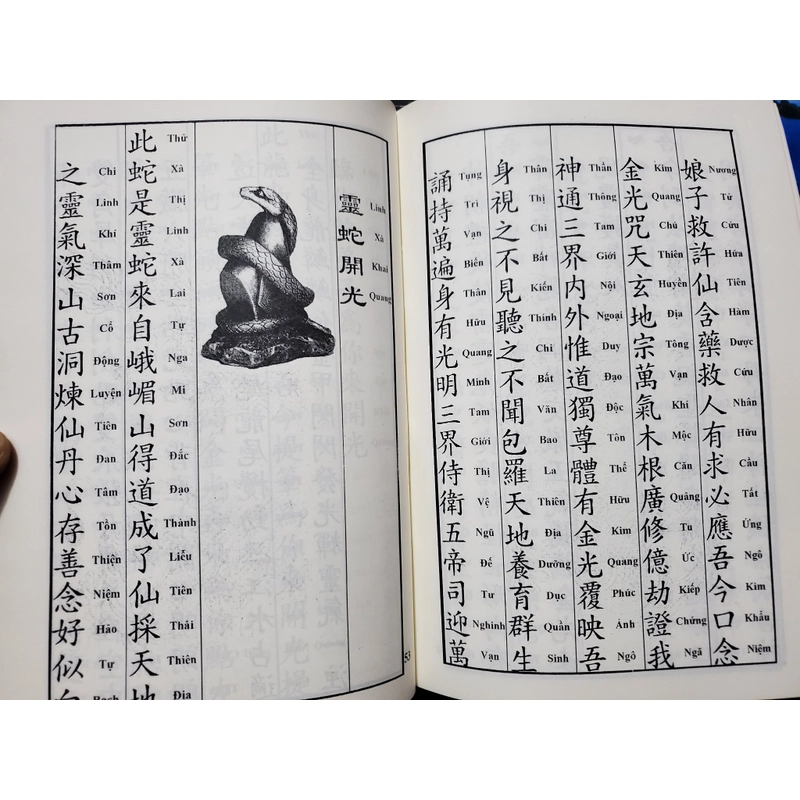 娘子救許仙含藥救人有求必應吾今口念
Nương Tử Cứu Hứa Tiên Hàm Dược Cứu Nhân Hữu Cầu Tất Ứng Ngô Kim Khẩu Niệm
金光咒天玄地宗萬氣木根廣修億劫證我
Kim Quang Chú Thiên Huyền Địa Tông Vạn Khí Mộc Căn Quảng Tu Ức Kiếp Chứng Ngã
神通三界內外惟道獨尊體有金光覆映吾
Thần Thông Tam Giới Nội Ngoại Duy Đạo Độc Tôn Thể Hữu Kim Quang Phúc Ánh Ngô
身視之不見聽之不聞包羅天地養育群生
Thân Thị Chi Bất Kiến Thính Chi Bất Văn Bao La Thiên Địa Dưỡng Dục Quần Sinh
誦持萬遍身有光明三界侍衛五帝司迎萬
Tụng Trì Vạn Biến Thân Hữu Quang Minh Tam Giới Thị Vệ Ngũ Đế Tư Nghinh Vạn
53
靈蛇開光
Linh Xà Khai Quang
此蛇是靈蛇來自峨嵋山得道成了仙採天地
Thử Xà Thị Linh Xà Lai Tự Nga Mi Sơn Đắc Đạo Thành Liễu Tiên Thái Thiên Địa
之靈氣深山古洞煉仙丹心存善念好似
Chi Linh Khí Thâm Sơn Cổ Động Luyện Tiên Đan Tâm Tồn Thiện Niệm Hảo Tự